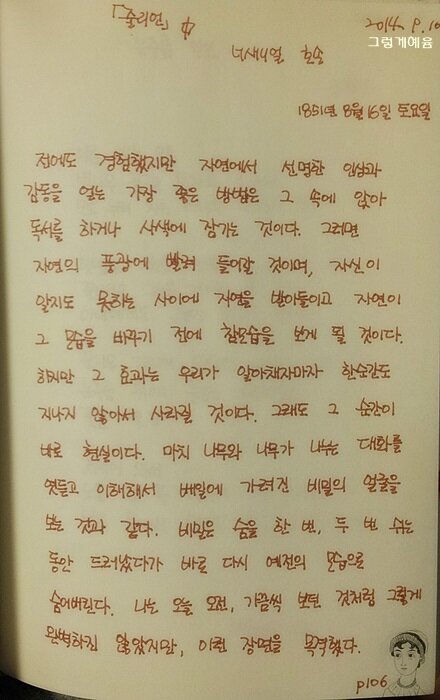 「줄리언」 中
2014. 9. 10
그렇게예윰
너새니얼 호손
1851년 8월 16일 토요일
전에도 경험했지만 자연에서 선명한 인상과
감동을 얻는 가장 좋은 방법은 그 속에 앉아
독서를 하거나 사색에 잠기는 것이다. 그러면
자연의 풍광에 빨려 들어갈 것이며, 자신이
알지도 못하는 사이에 자연을 받아들이고 자연이
그 모습을 바꾸기 전에 참모습을 보게 될 것이다.
하지만 그 효과는 우리가 알아채자마자 한순간도
지나지 않아서 사라질 것이다. 그래도 그 순간이
바로 현실이다. 마치 나무와 나무가 나누는 대화를
엿듣고 이해해서 베일에 가려진 비밀의 얼굴을
보는 것과 같다. 비밀은 숨을 한 번, 두 번 쉬는
동안 드러났다가 바로 다시 예전의 모습으로
숨어버린다. 나는 오늘 오전, 가끔씩 보던 것처럼 그렇게
완벽하진 않았지만, 이런 장면을 목격했다.
p106